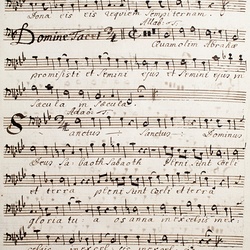 Dona eis eis requiem sempiternam.
Alla br.
Domine Tacet
Quam olim Abrahæ
promisisti et semini ejus et semini ejus in
Sæcula in sæcula.
Adagio
Sanctus Sanctus Dominus
Deus Sabaoth Sabaoth Pleni sunt cœli
et terra pleni sunt cœli et terra
gloria tua osanna in excelsis in ex-